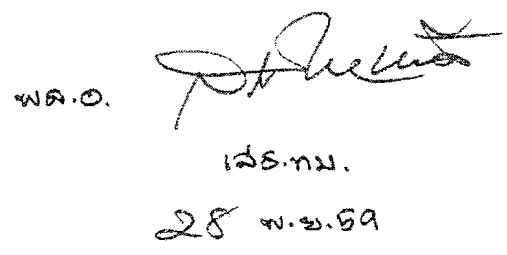 พล.อ.
เสธ.ทบ.
28 พ.ย.59